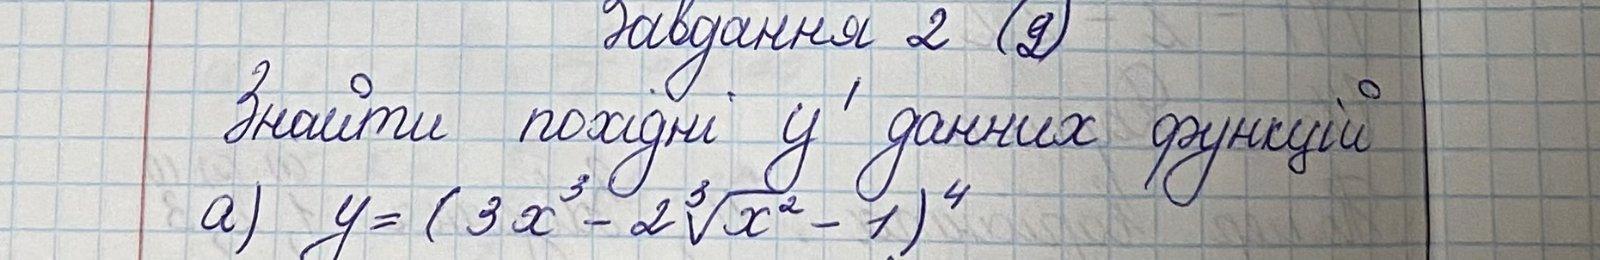 Завдання 2 (д)
Знайти похідні y' данних функцій
а) y = (3x³ - 2∛x² - 1)⁴